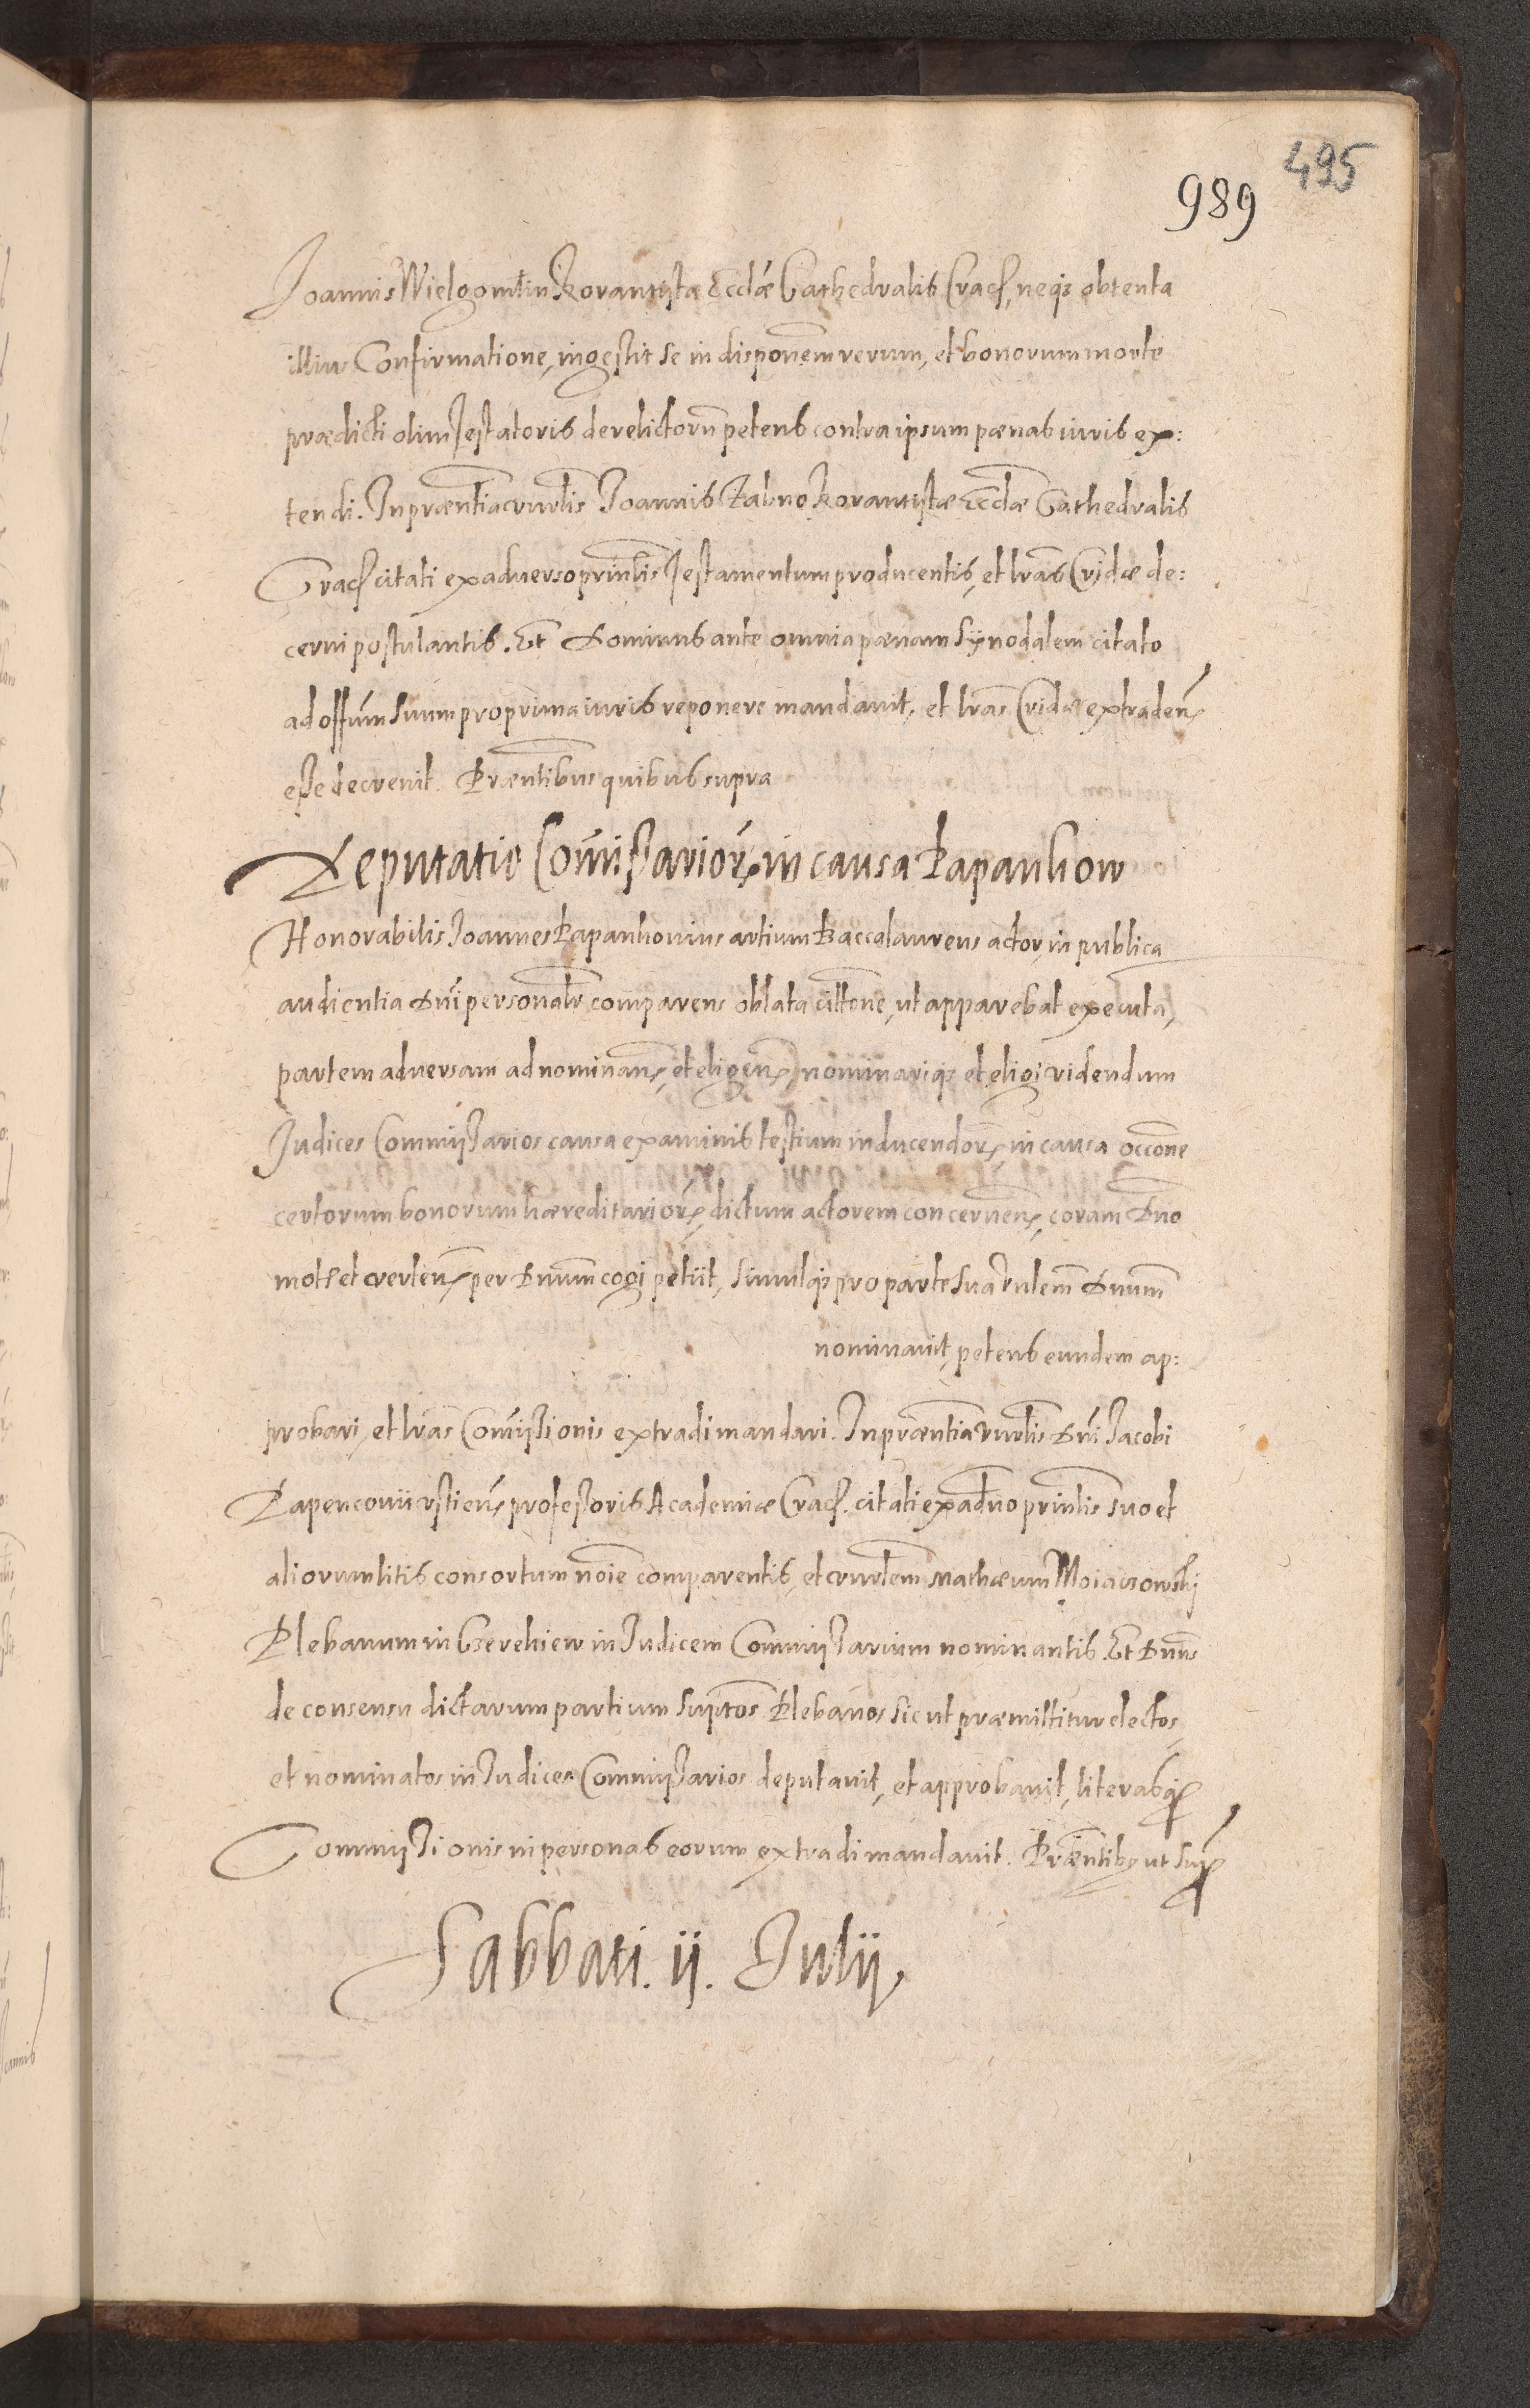 495
989
Joannis Wielgomlin Rorantistæ Eccłæ Cathedralis Crac̃, neq; obtenta
illius Confirmatione, ingessit se in disponem̃ rerum, et bonorum morte
prædicti olim Testatoris derelictorũ petens contra ipsum pænas iuris ex:
tendi. In præntia vnrlis Joannis Zabno Rorantistæ Eccłæ Cathedralis
Crac̃ citati ex adverso prinlis Testamentum producentis, et lras Cridæ de:
cerni postulantis. Et Dominus ante omnia pænam Synodalem citato
ad offm̃ suum pro prima iuris reponere mandavit, et lras Cridæ extraden̄
esse decrevit. Præntibus quibus supra
Deputatio Com̃issarior̃ in causa Papanhow
Honorabilis Joannes Papanhovius artium Baccalaureus actor, in publica
audientia Dñi personalr comparens oblata cittõne, ut apparebat executa,
partem adversam ad nominan̄, et eligen̄, nominariq; et eligi videndum
Judices Commissarios causa examinis testium inducendor̃ in causa occõne
certorum bonorum hæreditarior̃, dictum actorem concernen̄, coram Dño
mot̃ et verten̄, per Dnum̃ cogi petiit, simulq; pro parte sua Dnum̃
nominavit, petens eundem ap:
probari, et lras Com̃issionis extradi mandari. In præntia Vnrlis Dñi Jacobi
professoris Academiæ Crac̃. citati ex adṽo prinlis suo et
aliorum litis consortum noĩe comparentis, et vnrlem̃ Mathæum
Plebanum in in Judicem Commissarium nominantis. Et Dnus̃
de consensu dictarum partium suptos̃ Plebanos sic ut præmittitur electos,
et nominatos in Judices Commissarios deputavit, et approbavit, literasq;
Commissionis in personas eorum extradi mandavit. Præntiby ut sup̃
Sabbati. ii. Julii,